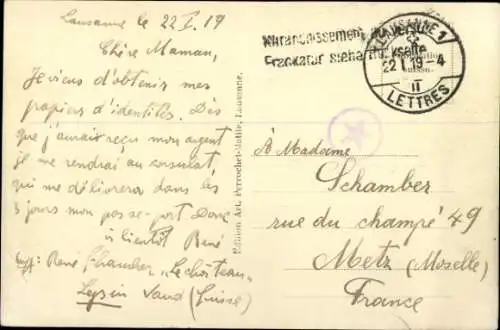 Lausanne le 22 I. 19
Chère Maman,
Je viens d'obtenir mes
papiers d'identités. Dès
que j'aurai reçu mon argent
je me rendrai au consulat
qui me délivrera dans les
3 jours mon passe-port Donc
à bientôt René
René Schamber "Le chateau"
Leysin Vaud (Suisse)
Edition Art. Perrochet-Matile, Lausanne.
Affranchissement au verso
Frankatur siehe Rückseite
LAUSANNE 1
22 I 19 - 4
II
LETTRES
à Madame
Schamber
rue du champé 49
Metz (Moselle)
France